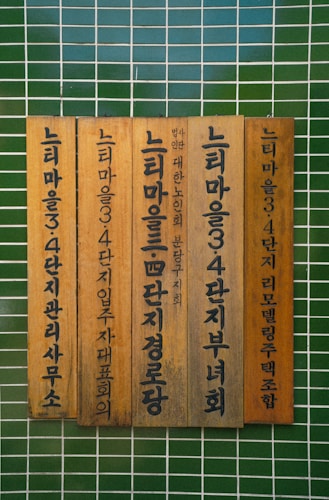 느티마을3·4단지관리사무소
느티마을3·4단지입주자대표회의
사단법인 대한노인회 분당구지회
느티마을三·四단지경로당
느티마을3·4단지부녀회
느티마을3·4단지 리모델링주택조합